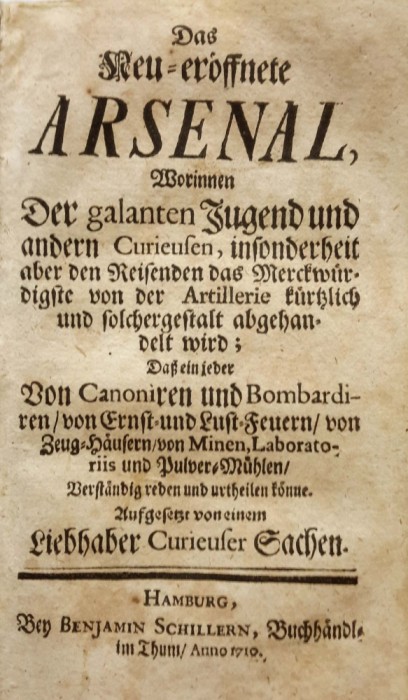 Das
Neu-eröffnete
ARSENAL,
Worinnen
Der galanten Jugend und
andern Curieusen, insonderheit
aber den Reisenden das Merckwür-
digste von der Artillerie kürtzlich
und solchergestalt abgehan-
delt wird;
Daß ein jeder
Von Canoniren und Bombardi-
ren/ von Ernst- und Lust-Feuern/ von
Zeug-Häusern/ von Minen, Laborato-
riis und Pulver-Mühlen/
Verständig reden und urtheilen könne.
Aufgesetzt von einem
Liebhaber Curieuser Sachen.
HAMBURG,
Bey BENJAMIN SCHILLERN, Buchhändl.
im Thum/ Anno 1710.